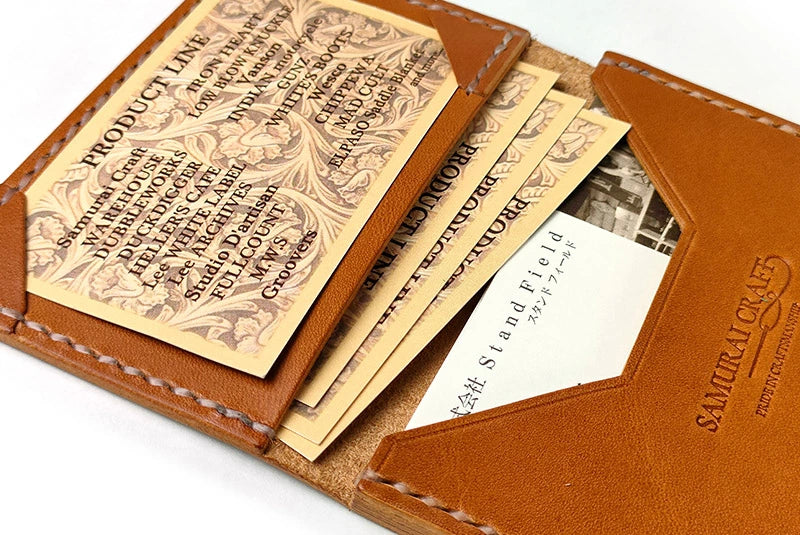 PRODUCT LINE
IRON HEART
LONE WOLF
Yansin
INDIAN
GUNZ
WHITE'S BOOTS
Wesco
CHIPPEWA
MAD CULT
ELPASO Saddle Blanket
and more
Samurai Craft
WAREHOUSE
DUBBLEWORKS
DUCKDIGGER
HELLER'S CAFE
Lee WHITE LABEL
Lee ARCHIVES
Studio Dartisan
FULLCOUNT
M.W.S
Groovers
PRODUCT LINE
PRODUCT LINE
PRODUCT
式会社 Stand Field
スタンド フィールド
SAMURAI CRAFT
PRIDE IN CRAFTSMANSHIP